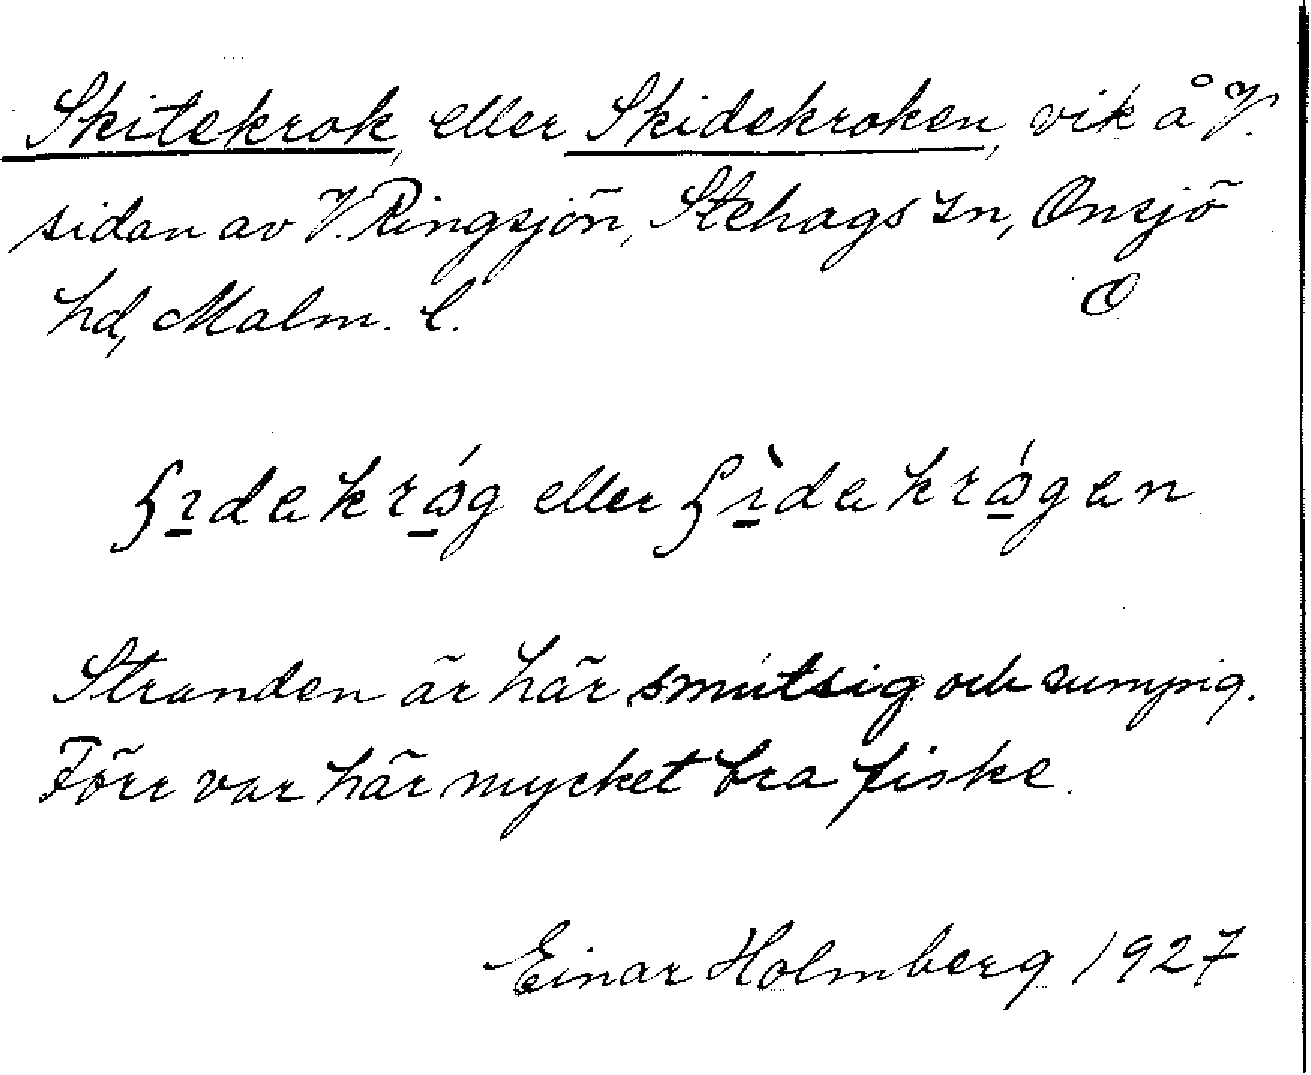 Skitekrok, eller Skidekroken, vik å V.
sidan av V. Ringsjön, Stehags sn, Onsjö
hd, Malm. l. O
ʃɪdakrǻg eller ʃɪ̀dakrǻgan
Stranden är här smutsig och sumpig.
Förr var här mycket bra fiske.
Einar Holmberg 1927